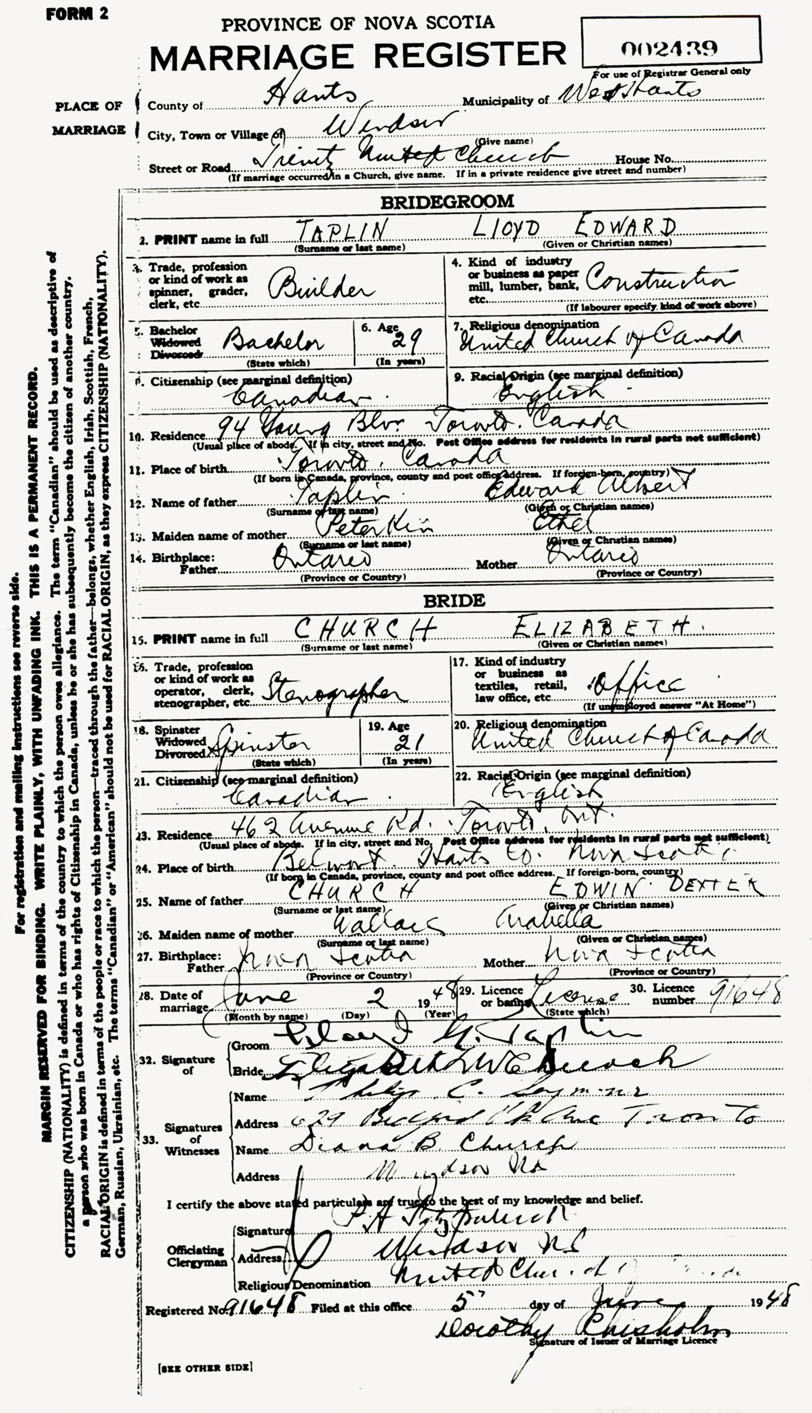 FORM 2
PROVINCE OF NOVA SCOTIA
MARRIAGE REGISTER
002439
For use of Registrar General only
PLACE OF MARRIAGE
County of Hants Municipality of West Hants
City, Town or Village of Windsor
(Give name)
Street or Road Trinity United Church House No.
(If marriage occurred in a Church, give name. If in a private residence give street and number)
BRIDEGROOM
2. PRINT name in full TAPLIN LLOYD EDWARD
(Surname or last name) (Given or Christian names)
3. Trade, profession or kind of work as spinner, grader, clerk, etc. Builder
4. Kind of industry or business as paper mill, lumber, bank, etc. Construction
(If labourer specify kind of work above)
5. Bachelor Widowed Divorced Bachelor
(State which)
6. Age 29
(In years)
7. Religious denomination
United Church of Canada
8. Citizenship (see marginal definition)
Canadian
9. Racial Origin (see marginal definition)
English
10. Residence 94 Young Blv. Toronto. Canada
(Usual place of abode. If in city, street and No. Post Office address for residents in rural parts not sufficient)
11. Place of birth Toronto. Canada
(If born in Canada, province, county and post office address. If foreign-born, country)
12. Name of father Taplin Edward Albert
(Surname or last name) (Given or Christian names)
13. Maiden name of mother Peterkin Ethel
(Surname or last name) (Given or Christian names)
14. Birthplace: Father Ontario Mother Ontario
(Province or Country) (Province or Country)
BRIDE
15. PRINT name in full CHURCH ELIZABETH.
(Surname or last name) (Given or Christian names)
16. Trade, profession or kind of work as operator, clerk, stenographer, etc. Stenographer
17. Kind of industry or business as textiles, retail, law office, etc. Office
(If unemployed answer "At Home")
18. Spinster Widowed Divorced Spinster
(State which)
19. Age 21
(In years)
20. Religious denomination
United Church of Canada
21. Citizenship (see marginal definition)
Canadian
22. Racial Origin (see marginal definition)
English
23. Residence 462 Avenue Rd. Toronto, Ont.
(Usual place of abode. If in city, street and No. Post Office address for residents in rural parts not sufficient)
24. Place of birth Belmont. Hants Co. Nova Scotia
(If born in Canada, province, county and post office address. If foreign-born, country)
25. Name of father CHURCH EDWIN DEXTER
(Surname or last name) (Given or Christian names)
26. Maiden name of mother Wallace Arabella
(Surname or last name) (Given or Christian names)
27. Birthplace: Father Nova Scotia Mother Nova Scotia
(Province or Country) (Province or Country)
28. Date of marriage June 2 1948
(Month by name) (Day) (Year)
29. Licence or banns License
(State which)
30. Licence number 91648
32. Signature of
Groom Lloyd Taplin
Bride Elizabeth Church
33. Signatures of Witnesses
Name Philip C. Seymour
Address 629 Bedford Pk Ave Toronto
Name Diana B. Church
Address Windsor NS
I certify the above stated particulars are true to the best of my knowledge and belief.
Officiating Clergyman
Signature P.A. Fitzpatrick
Address Windsor NS
Religious Denomination United Church
Registered No. 91648 Filed at this office 5" day of June 1948
Dorothy Chisholm
Signature of Issuer of Marriage Licence
[SEE OTHER SIDE]
For registration and mailing instructions see reverse side.
MARGIN RESERVED FOR BINDING. WRITE PLAINLY, WITH UNFADING INK. THIS IS A PERMANENT RECORD.
CITIZENSHIP (NATIONALITY) is defined in terms of the country to which the person owes allegiance. The term "Canadian" should be used as descriptive of
a person who was born in Canada or who has rights of Citizenship in Canada, unless he or she has subsequently become the citizen of another country.
RACIAL ORIGIN is defined in terms of the people or race to which the person—traced through the father—belongs, whether English, Irish, Scottish, French,
German, Russian, Ukrainian, etc. The terms "Canadian" or "American" should not be used for RACIAL ORIGIN, as they express CITIZENSHIP (NATIONALITY).